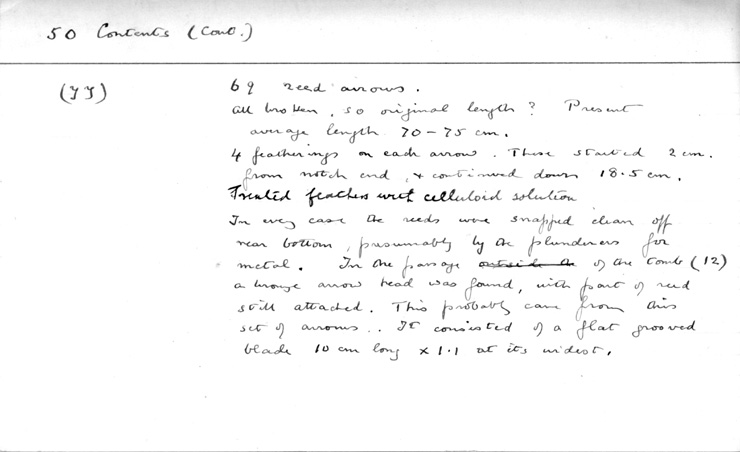 50 Contents (Cont.)
(JJ)
69 reed arrows.
All broken, so original length? Present
average length 70-75 cm.
4 featherings on each arrow. These started 2 cm.
from notch end, & continued down 18.5 cm.
Treated feathers with celluloid solution
In every case the reeds were snapped clean off
near bottom, presumably by the plunderers for
metal. In the passage outside the of the tomb (12)
a bronze arrow head was found, with part of reed
still attached. This probably came from this
set of arrows.. It consisted of a flat grooved
blade 10 cm long x 1.1 at its widest.